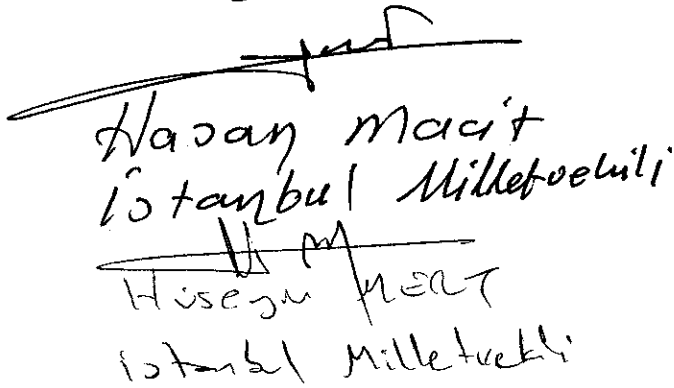 Hasan Macit
İstanbul Milletvekili
Hüseyin MERT
İstanbul Milletvekili